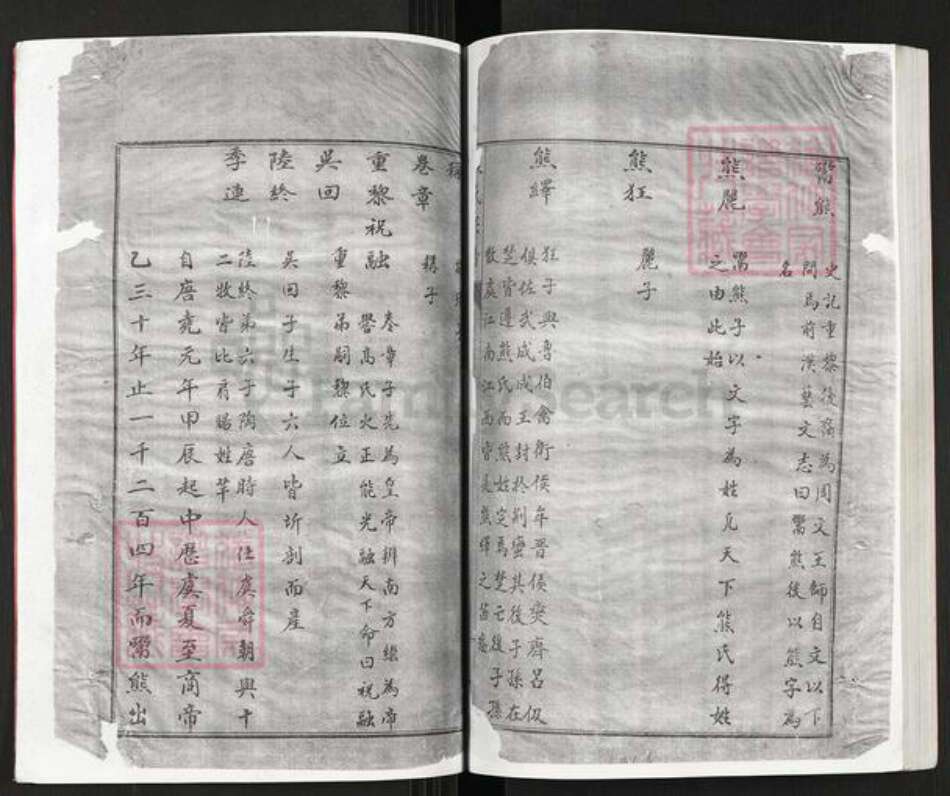 鬻熊
史記重黎後裔為周文王師自文以下
問為前漢藝文志曰鬻熊後以熊字為
名
熊麗
鬻熊子以文字為姓凡天下熊氏得姓
之由此始
熊狂
麗子
熊繹
狂子與魯伯禽衛侯年晉侯燮齊呂伋
俱佐武成成王封於荊蠻其後子孫在
楚皆遵熊氏而熊姓定焉楚亡後子孫
散處江南江西皆是熊繹之苗裔
卷章
稱子
重黎祝融
卷章子先為皇帝辨南方繼為帝
嚳高氏火正能光融天下命曰祝融
吳回
重黎弟嗣黎位立
陸終
吳回子生子六人皆坼剖而產
季連
陸終弟六子陶唐時人仕虞舜朝與十
二牧皆比肩賜姓羋
自唐堯元年甲辰起中歷虞夏至商帝
乙三十年止一千二百四年而鬻熊出
FamilySearch